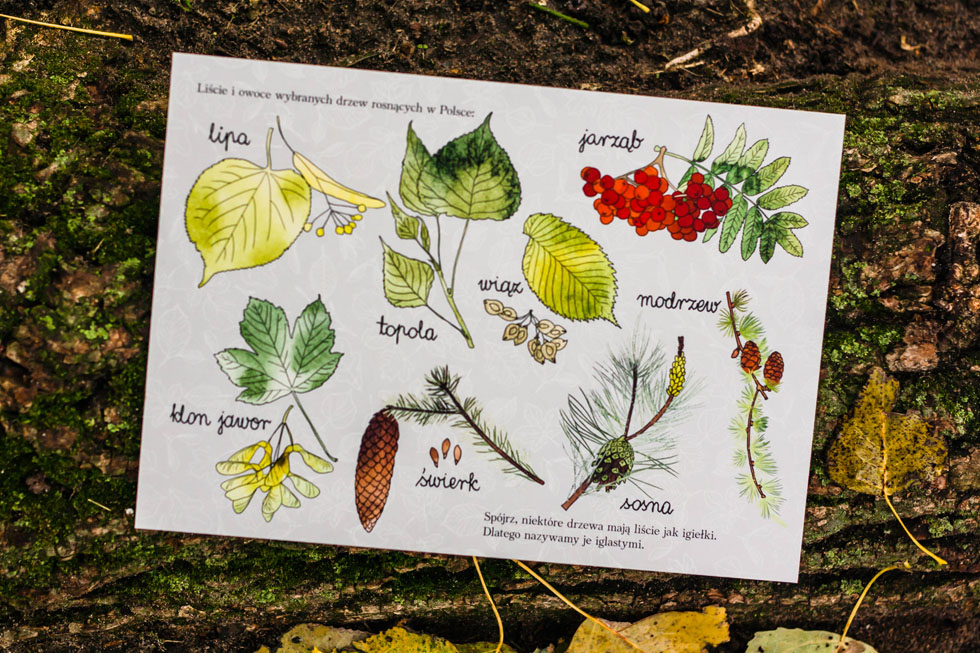 Liście i owoce wybranych drzew rosnących w Polsce:
lipa
jarząb
wiąz
modrzew
topola
klon jawor
świerk
sosna
Spójrz, niektóre drzewa mają liście jak igiełki.
Dlatego nazywamy je iglastymi.